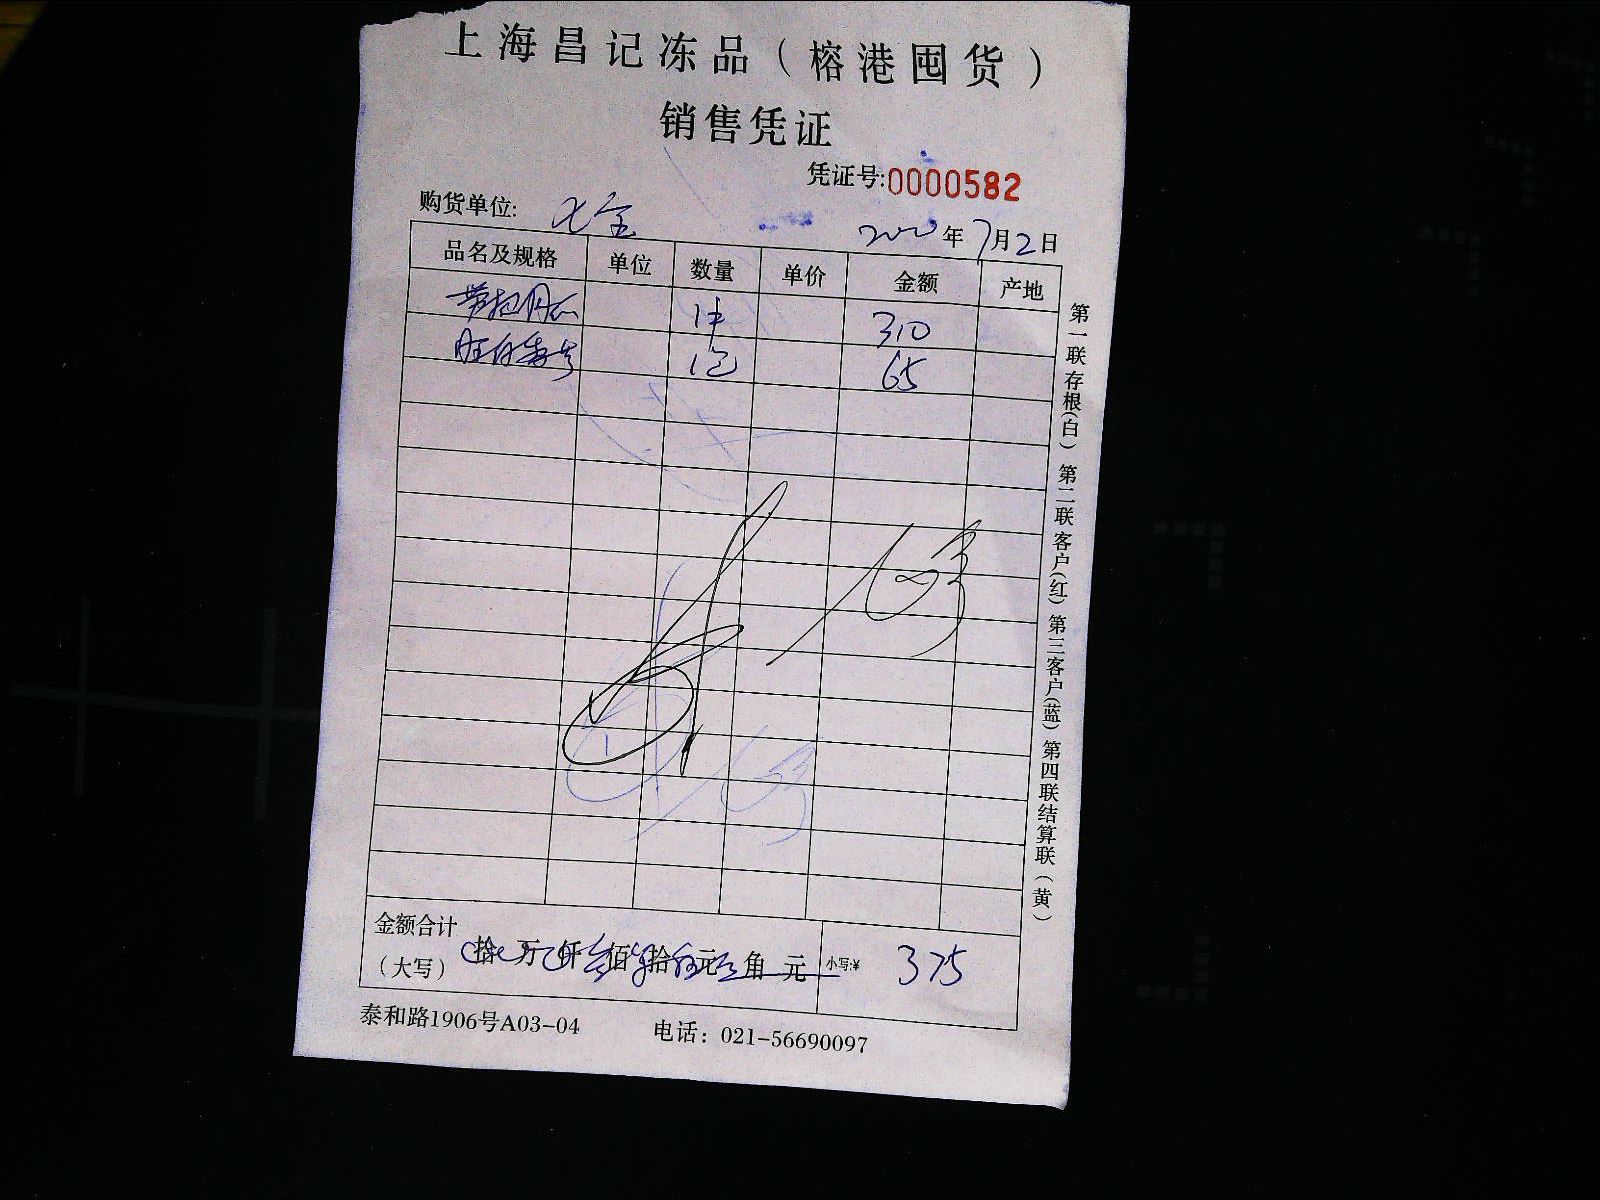 上海昌记冻品（榕港囤货）
销售凭证
凭证号:0000582
购货单位:
年7月2日
品名及规格 单位 数量 单价 金额 产地
1件 310
1包 65
第一联存根(白) 第二联客户(红) 第三客户(蓝) 第四联结算联(黄)
金额合计
（大写） 拾 万 仟 叁佰 拾 伍元 角 元 小写:¥ 375
泰和路1906号A03-04 电话：021-56690097